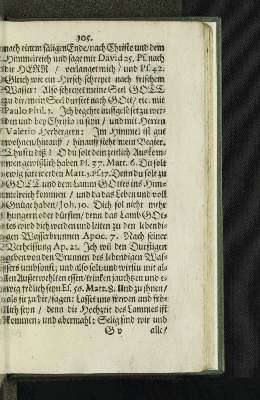 105.
nach einem säligen Ende/ nach Christo und dem
Himmelreich und sage mit David 25. Ps. nach
dir HERR / verlanget mich / und Ps. 42.
Gleich wie ein Hirsch schreyet nach frischem
Wasser: Also schreyet meine Seel GOTT
zu dir/ mein Seel durstet nach Gott/ etc. mit
Paulo Phil. 1. Ich begehre auffgelöst zu wer-
den und bey Christo zu seyn / und mit Herren
Valerio Herbergern: Im Himmel ist gut
wohnen/ hinauff / hinauff stehe mein Begier.
Thust du diß? O du solt dein zeitlich Auskom-
men gewißlich haben Ps. 37. Matt. 6. Du solt
ewig satt werden Matt. 5. Ps. 17. Denn du solt zu
GOTT und dem Lamm GOttes ins Him-
melreich kommen / und da das Leben und voll
Gnüge haben/ Joh. 10. Dich sol nicht mehr
hungern oder dürsten/ denn das Lamb GOt-
tes wird dich weiden und leiten zu den lebendi-
gen Wasserbrunnen Apoc. 7. Nach seiner
Verheissung Ap. 21. Ich wil den Durstigen
geben von den Brunnen des lebendigen Was-
sers umbsonst; und also solt und wirstu mit al-
len Außerwöhlten essen/ trinken/ jauchzen und e-
wig frölich seyn Es. 56. Matt. 8. Und zu ihnen/
als sie zu dir/ sagen: Lasset uns frewen und frö-
lich seyn / denn die Hochzeit des Lammes ist
kommen; und abermahl; Selig sind wir und
G v alle/